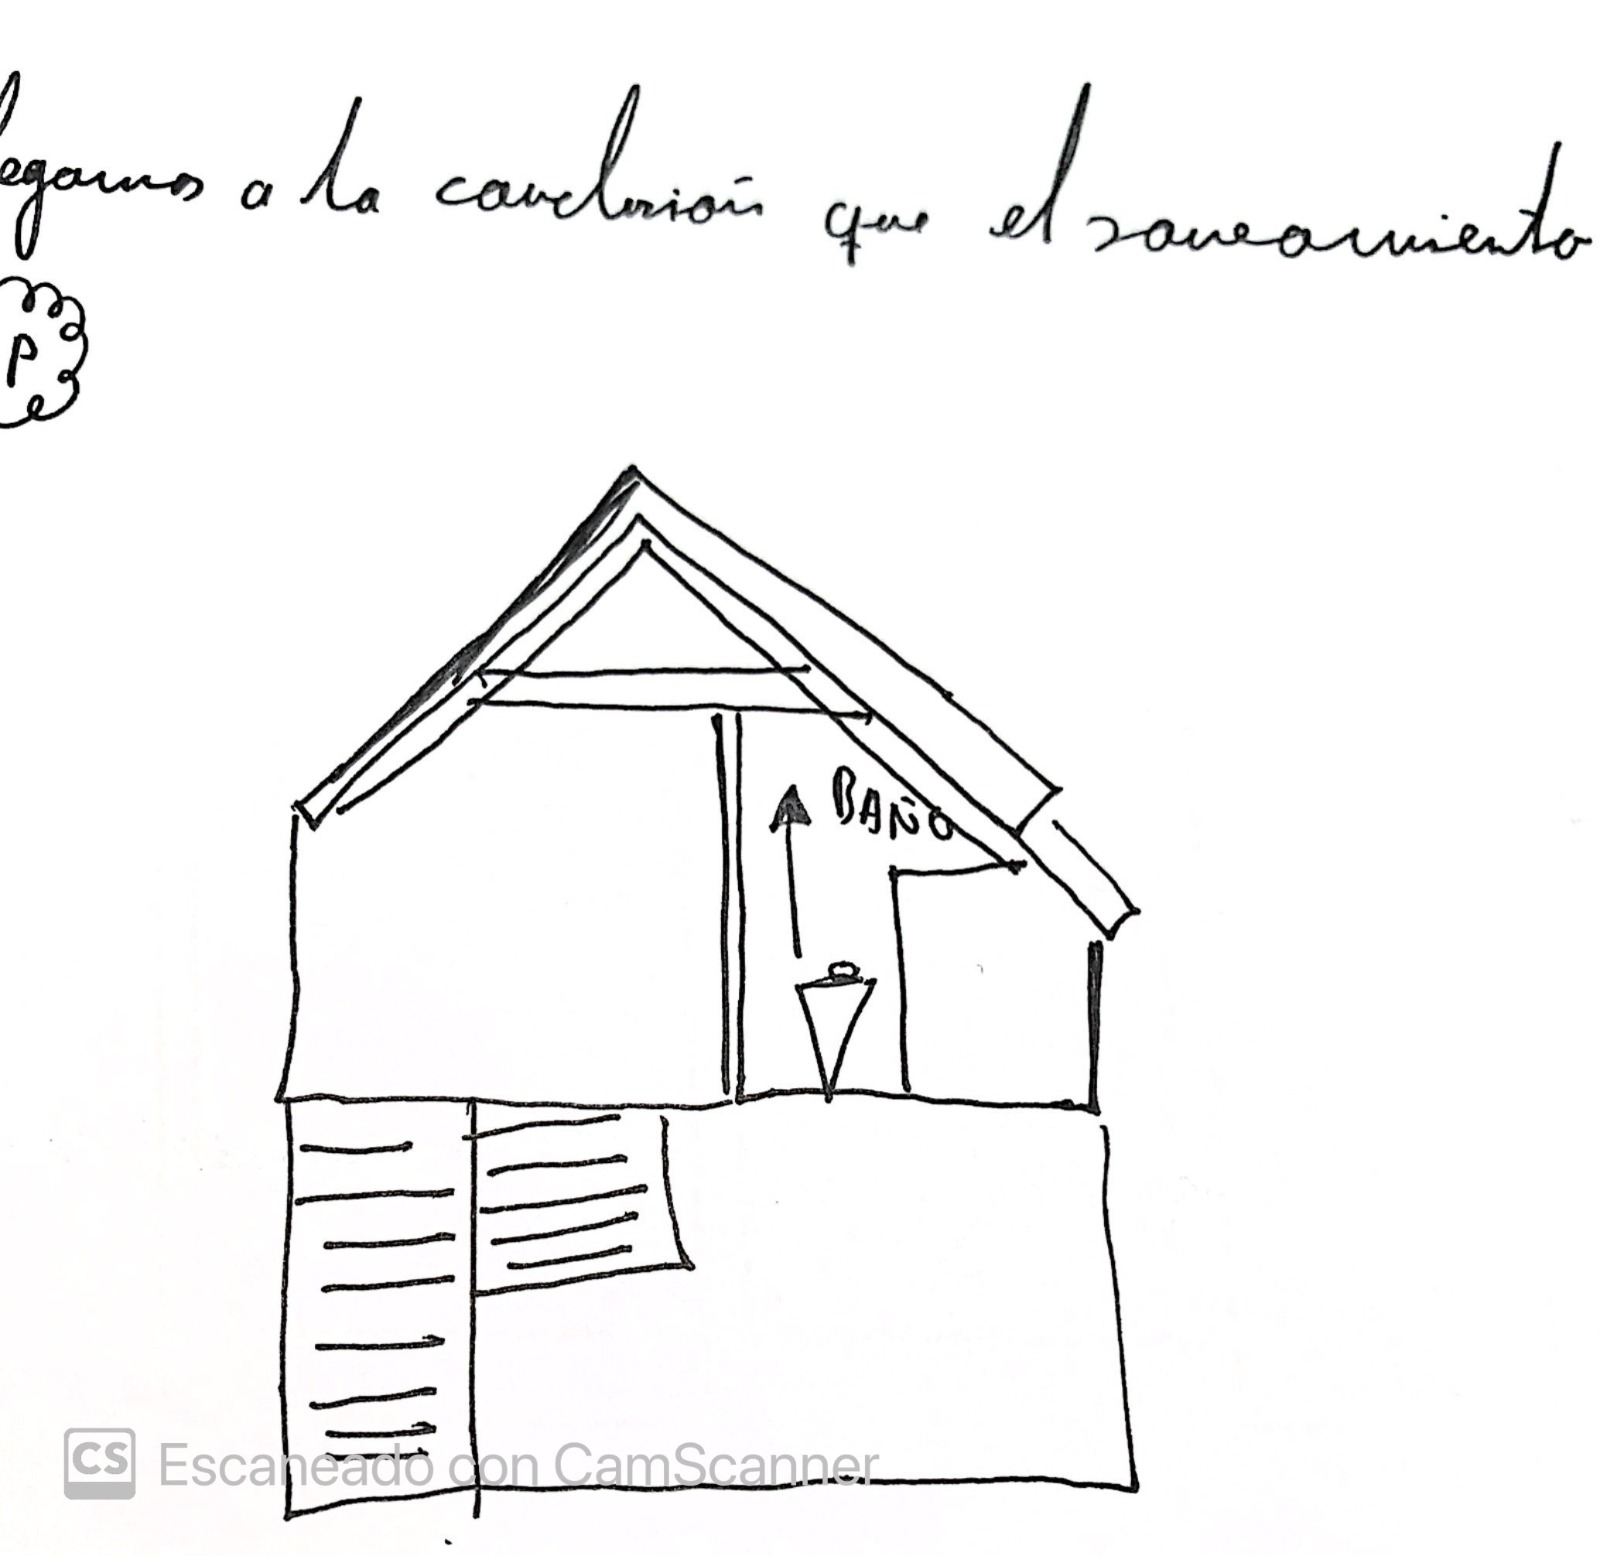 legamos a la conclusión que el saneamiento
P
BAÑO
CS Escaneado con CamScanner